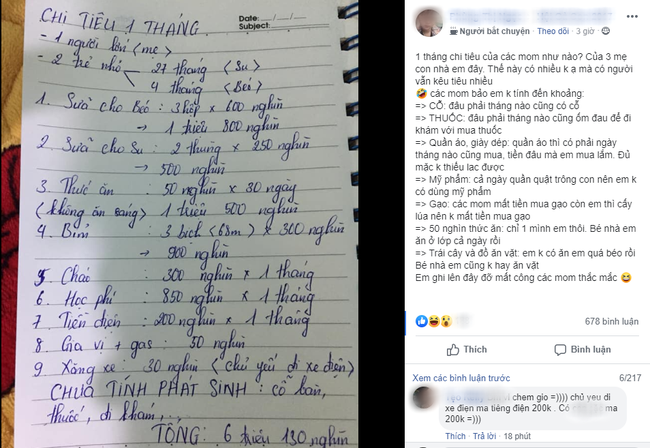 CHI TIÊU 1 THÁNG.
Date: / /
Subject:
- 1 người lớn (mẹ)
- 2 trẻ nhỏ 27 tháng (Su)
4 tháng (Béo)
1. Sữa cho Béo : 3 hộp × 600 nghìn
→ 1 triệu 800 nghìn
2. Sữa cho Su : 2 thùng × 250 nghìn
→ 500 nghìn
3. Thức ăn : 50 nghìn × 30 ngày
(không ăn sáng) 1 triệu 500 nghìn
4. Bỉm : 3 bịch (68m) × 300 nghìn
→ 900 nghìn
5. Cháo : 300 nghìn × 1 tháng
6. Học phí : 850 nghìn × 1 tháng
7. Tiền điện : 200 nghìn × 1 tháng
8. Gia vị + gas : 50 nghìn
9. Xăng xe : 30 nghìn (chủ yếu đi xe điện)
CHƯA TÍNH PHÁT SINH : cỗ bàn,
thuốc, đi khám, ...
TỔNG: 6 triệu 130 nghìn
Người bắt chuyện · Theo dõi · 3 giờ
1 tháng chi tiêu của các mom như nào? Của 3 mẹ
con nhà em đây. Thế này có nhiều k ạ mà có người
vẫn kêu tiêu nhiều
🤣 các mom bảo em k tính đến khoảng:
=> CỖ: đâu phải tháng nào cũng có cỗ
=> THUỐC: đâu phải tháng nào cũng ốm đau để đi
khám với mua thuốc
=> Quần áo, giày dép: quần áo thì có phải ngày
tháng nào cũng mua, tiền đâu mà em mua lắm. Đủ
mặc k thiếu lac được
=> Mỹ phẩm: cả ngày quần quật trông con nên em k
có dùng mỹ phẩm
=> Gạo: các mom mất tiền mua gạo còn em thì cấy
lúa nên k mất tiền mua gạo
=> 50 nghìn thức ăn: chỉ 1 mình em thôi. Bé nhà em
ăn ở lớp cả ngày rồi
=> Trái cây và đồ ăn vặt: em k có ăn em quá béo rồi
Bé nhà em cũng k hay ăn vặt
Em ghi lên đây đỡ mất công các mom thắc mắc 😆
678 bình luận
Thích
Bình luận
Xem các bình luận trước
6/217
chem gio =)))) chủ yeu di
xe điẹn ma tiêng điện 200k . Có ma
200k =)))
Thích · Trả lời · 18 phút